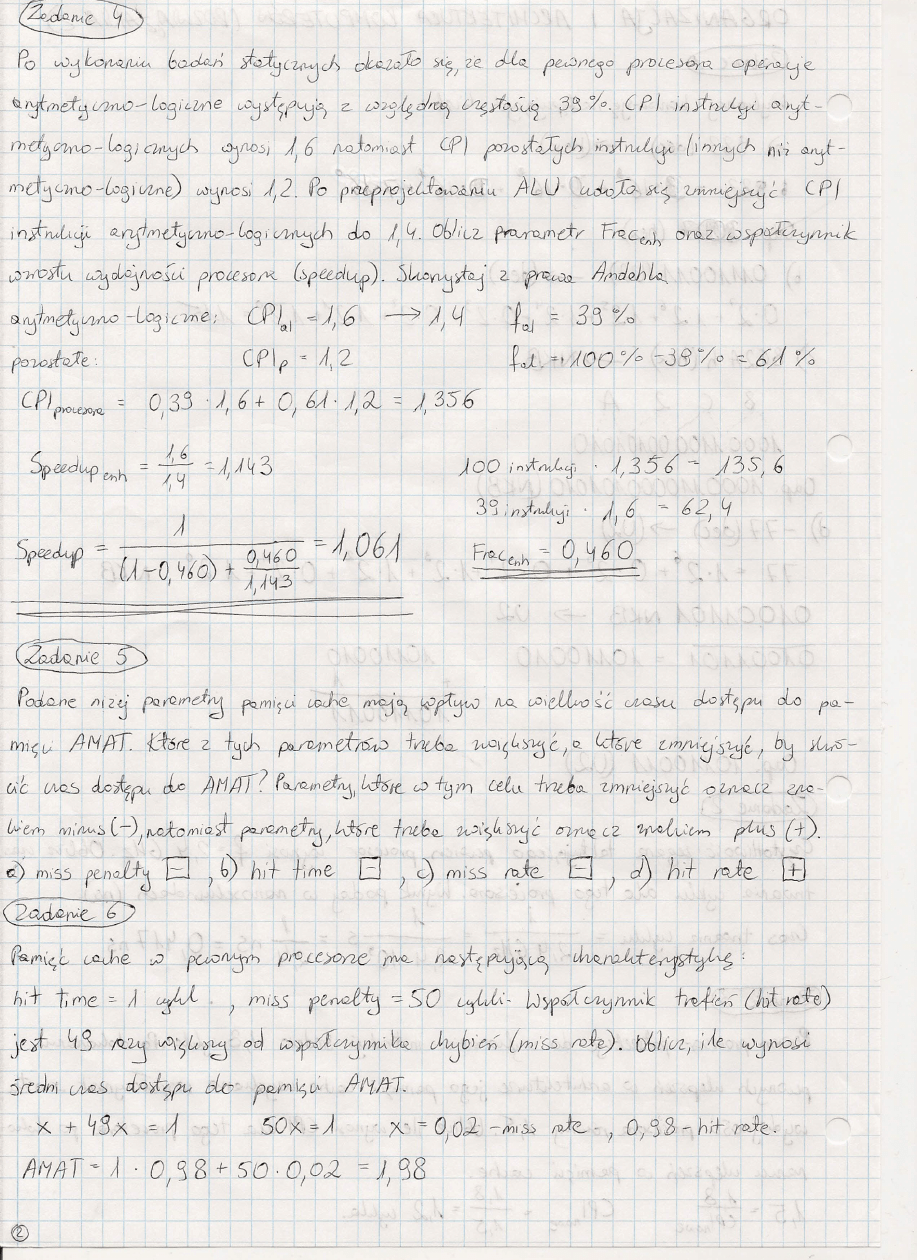 Zadanie 4
Po wykonaniu badań statycznych okazało się, że dla pewnego procesora operacje
arytmetyczno-logiczne występują z względną częstością 39%. CPI instrukcji aryt-
metyczno-logicznych wynosi 1,6 natomiast CPI pozostałych instrukcji (innych niż aryt-
metyczno-logiczne) wynosi 1,2. Po przeprojektowaniu ALU udało się zmniejszyć CPI
instrukcji arytmetyczno-logicznych do 1,4. Oblicz prarametr Frac_enh oraz współczynnik
wzrostu wydajności procesora (speedup). Skorzystaj z prawa Amdahla
arytmetyczno-logiczne: CPI_al = 1,6 → 1,4 f_al = 39%
pozostałe: CPI_p = 1,2 f_al = 100% - 39% = 61%
CPI_procesora = 0,39 · 1,6 + 0,61 · 1,2 = 1,356
Speedup_enh = 1,6/1,4 = 1,143 100 instrukcji · 1,356 = 135,6
39 instrukcji · 1,6 = 62,4
Speedup = 1/((1-0,460) + 0,460/1,143) = 1,061 Frac_enh = 0,460
Zadanie 5
Podane niżej parametry pamięci cache mają wpływ na wielkość czasu dostępu do pa-
mięci AMAT. Które z tych parametrów trzeba zwiększyć, a które zmniejszyć, by skró-
cić czas dostępu do AMAT? Parametry, które w tym celu trzeba zmniejszyć oznacz zna-
kiem minus (-), natomiast parametry, które trzeba zwiększyć oznacz znakiem plus (+).
a) miss penalty [-], b) hit time [-], c) miss rate [-], d) hit rate [+]
Zadanie 6
Pamięć cache w pewnym procesorze ma następującą charakterystykę:
hit time = 1 cykl., miss penalty = 50 cykli. Współczynnik trafień (hit rate)
jest 49 razy większy od współczynnika chybień (miss rate). Oblicz, ile wynosi
średni czas dostępu do pamięci AMAT.
x + 49x = 1 50x = 1 x = 0,02 - miss rate, 0,98 - hit rate.
AMAT = 1 · 0,98 + 50 · 0,02 = 1,98
2